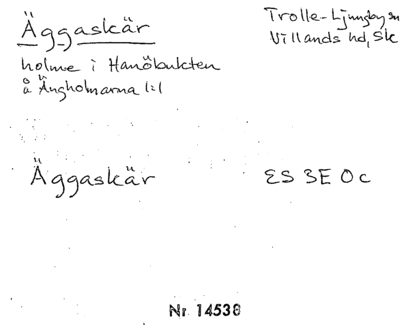 Äggaskär
Trolle-Ljungby sn
Villands hd, Sk
holme i Hanöbukten
å Ängholmarna 1:1
Äggaskär
ES 3E 0c
Nr 14538